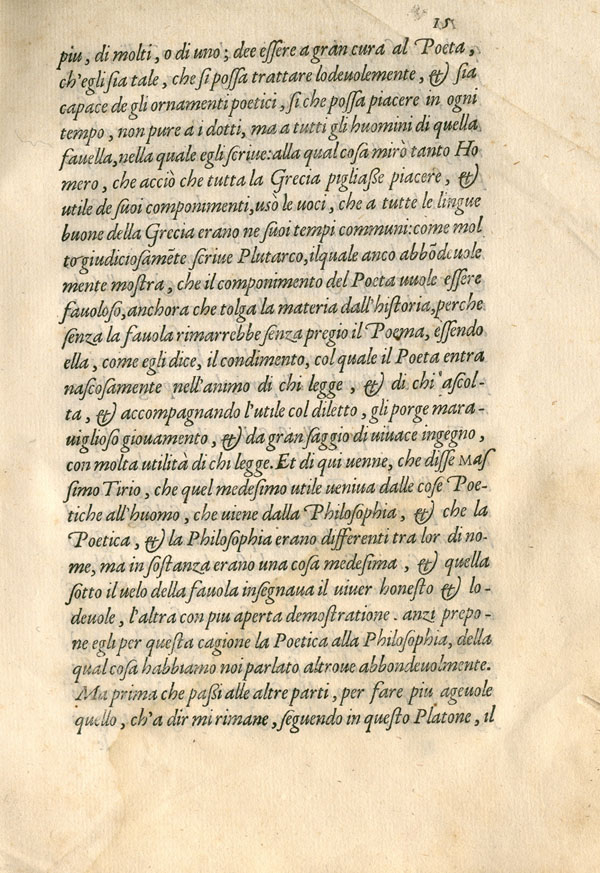 15
piu, di molti, o di uno; dee essere a gran cura al Poeta,
ch'egli sia tale, che si possa trattare lodeuolemente, & sia
capace de gli ornamenti poetici, si che possa piacere in ogni
tempo, non pure a i dotti, ma a tutti gli huomini di quella
fauella, nella quale egli scriue: alla qual cosa mirò tanto Ho
mero, che acciò che tutta la Grecia pigliaße piacere, &
utile de suoi componimenti, usò le uoci, che a tutte le lingue
buone della Grecia erano ne suoi tempi communi: come mol
to giudiciosamēte scriue Plutarco, ilquale anco abbōdeuole
mente mostra, che il componimento del Poeta uuole essere
fauoloso, anchora che tolga la materia dall'historia, perche
senza la fauola rimarrebbe senza pregio il Poema, essendo
ella, come egli dice, il condimento, col quale il Poeta entra
nascosamente nell'animo di chi legge, & di chi ascol-
ta, & accompagnando l'utile col diletto, gli porge mara-
uiglioso giouamento, & da gran saggio di uiuace ingegno,
con molta utilità di chi legge. Et di qui uenne, che disse Mas
simo Tirio, che quel medesimo utile ueniua dalle cose Poe-
tiche all'huomo, che uiene dalla Philosophia, & che la
Poetica, & la Philosophia erano differenti tra lor di no-
me, ma in sostanza erano una cosa medesima, & quella
sotto il uelo della fauola insegnaua il uiuer honesto & lo-
deuole, l'altra con piu aperta demostratione. anzi prepo-
ne egli per questa cagione la Poetica alla Philosophia, della
qual cosa habbiamo noi parlato altroue abbondeuolmente.
Ma prima che paßi alle altre parti, per fare piu ageuole
quello, ch'a dir mi rimane, seguendo in questo Platone, il